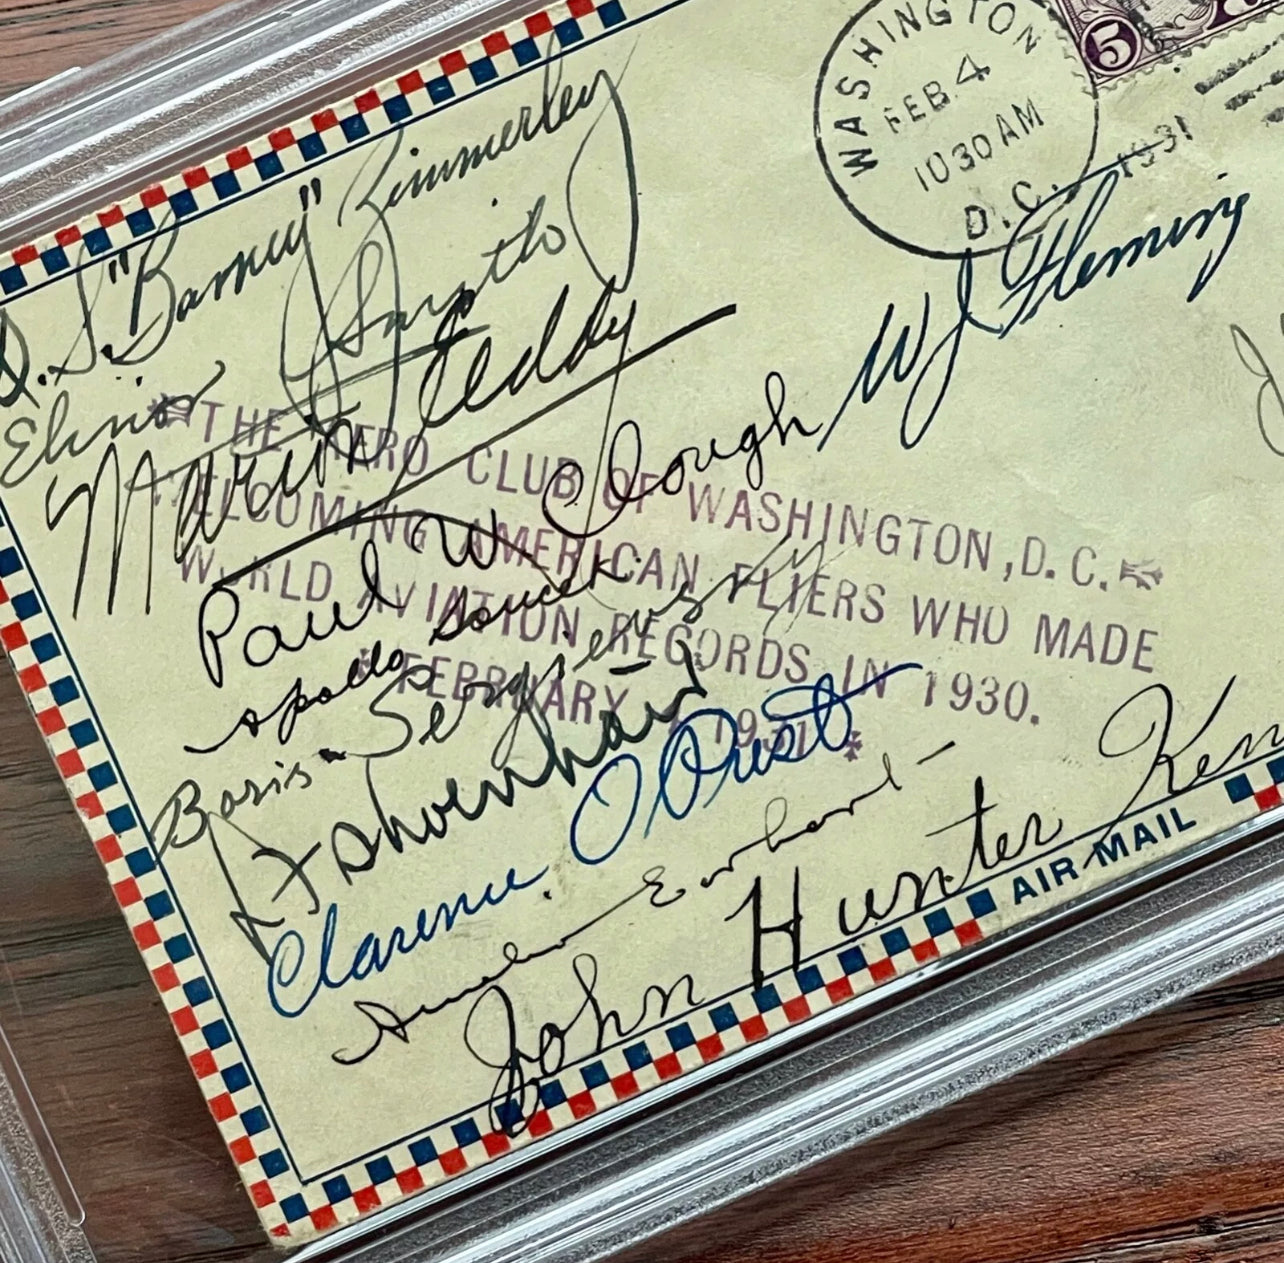 WASHINGTON
FEB. 4
10 30 AM
1931
D. C.
5
D. S. "Barney" Zimmerley
Elinor Smith
Marion Eddy
W J Fleming
Paul W Clough
THE AERO CLUB OF WASHINGTON, D. C.
WELCOMING AMERICAN FLIERS WHO MADE
WORLD AVIATION RECORDS IN 1930.
FEBRUARY 1931
Apollo Soucek
Boris Sergievsky
Clarence O Prest
Amelia Earhart
John Hunter Ken
AIR MAIL